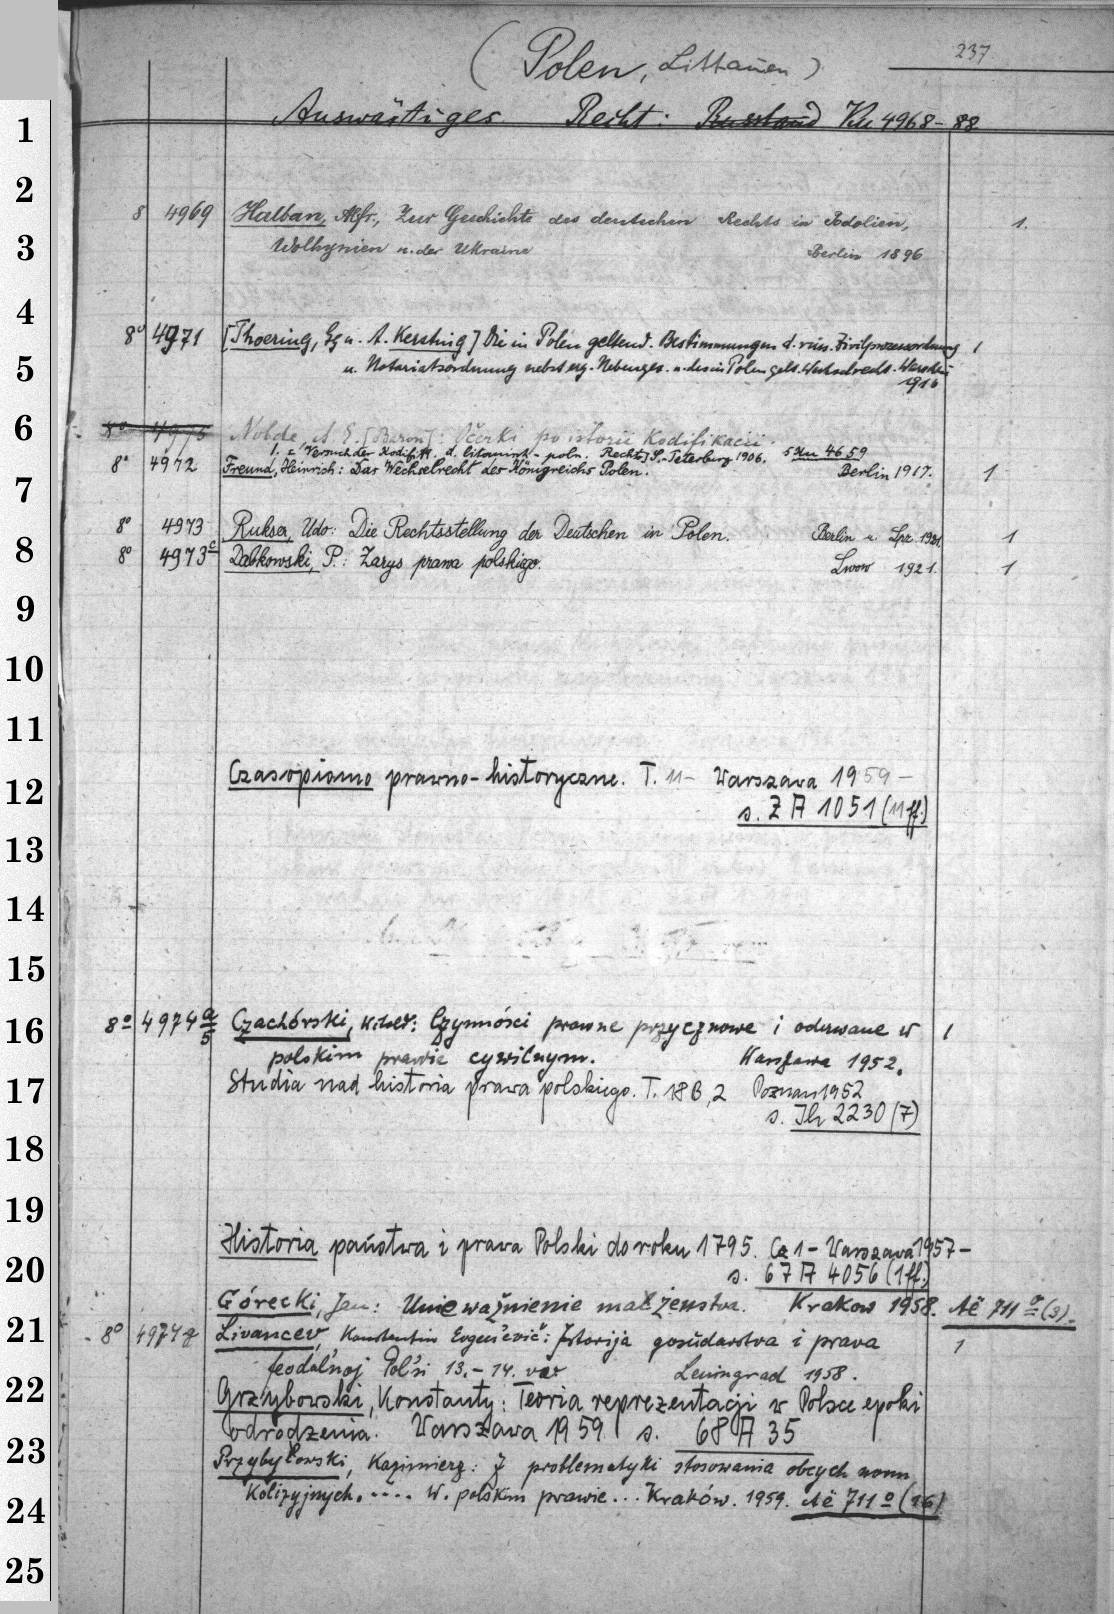 237
( Polen, Littauen )
Auswärtiges Recht: Russland Ku 4968-88
8 4969 Halban, Alfr., Zur Geschichte des deutschen Rechts in Podolien, 1.
Wolhynien u. der Ukraine Berlin 1896
8° 4971 [Thoering, Eg u. A. Kersting] Die in Polen geltend. Bestimmungen d. russ. Zivilprozessordnung 1
u. Notariatsordnung nebst erg. Nebenges. u. des in Polen gelt. Wechselrechts. Warschau
1916
8° 4975 Nolde, A. E. [Baron]: Očerki po istorii Kodifikacii.
1. = Versuch der Kodifik. d. litauisch-poln. Rechts] S.-Peterburg 1906. s Ku 4659
8° 4972 Freund, Heinrich: Das Wechselrecht des Königreichs Polen. Berlin 1917. 1
8° 4973 Rukser, Udo: Die Rechtsstellung der Deutschen in Polen. Berlin u. Lpz. 1921. 1
8° 4973c Dabkowski, P.: Zarys prawa polskiego. Lwow 1921. 1
Czasopismo prawno-historyczne. T. 11- Warszawa 1959-
s. Z A 1051 (11 ff.)
8° 4974 a/5 Czachórski, Witold: Czynności prawne przyczynowe i oderwane w 1
polskim prawie cywilnym. Warszawa 1952.
Studia nad historia prawa polskiego. T. 18 B, 2 Poznan 1952
s. Ih 2230 (7)
Historia państwa i prawa Polski do roku 1795. Cz 1- Warszawa 1957-
s. 67 A 4056 (1 ff.)
Górecki, Jan: Unieważnienie małżenstwa. Krakow 1958. Aë 711 o (3).
8° 4974z Livancev, Konstantin Evgen'evič: Istorija gosudarstva i prava 1
feodal'noj Pol'ši 13.-14. vv. Leningrad 1958.
Grzybowski, Konstanty: Teoria reprezentacji w Polsce epoki
odrodzenia. Warszawa 1959 s. 68 A 35
Przybyłowski, Kazimierz: Z problematyki stosowania obcych norm
kolizyjnych. .... w. polskim prawie... Kraków. 1959. Aë 711 o (16)
1
2
3
4
5
6
7
8
9
10
11
12
13
14
15
16
17
18
19
20
21
22
23
24
25